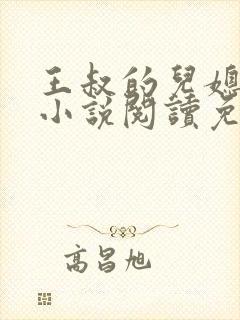 王叔的兒媳
小說閱讀免
高昌旭